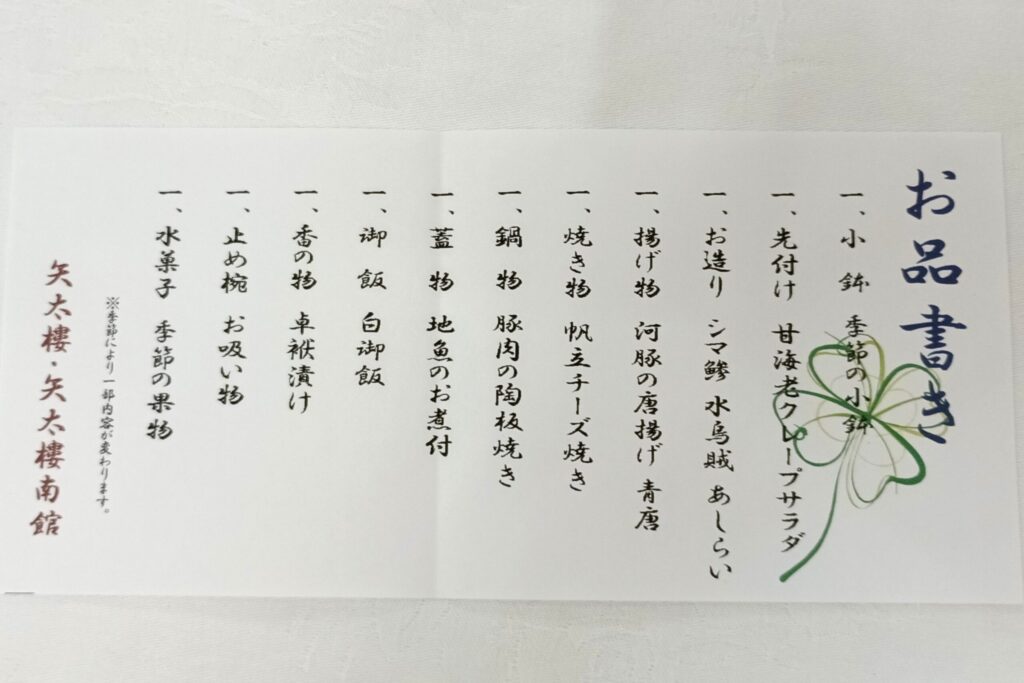 お品書き
一、小鉢 季節の小鉢
一、先付け 甘海老クレープサラダ
一、お造り シマ鯵 水烏賊 あしらい
一、揚げ物 河豚の唐揚げ 青唐
一、焼き物 帆立チーズ焼き
一、鍋物 豚肉の陶板焼き
一、蓋物 地魚のお煮付
一、御飯 白御飯
一、香の物 卓袱漬け
一、止め椀 お吸い物
一、水菓子 季節の果物
※季節により一部内容が変わります。
矢太樓・矢太樓南館